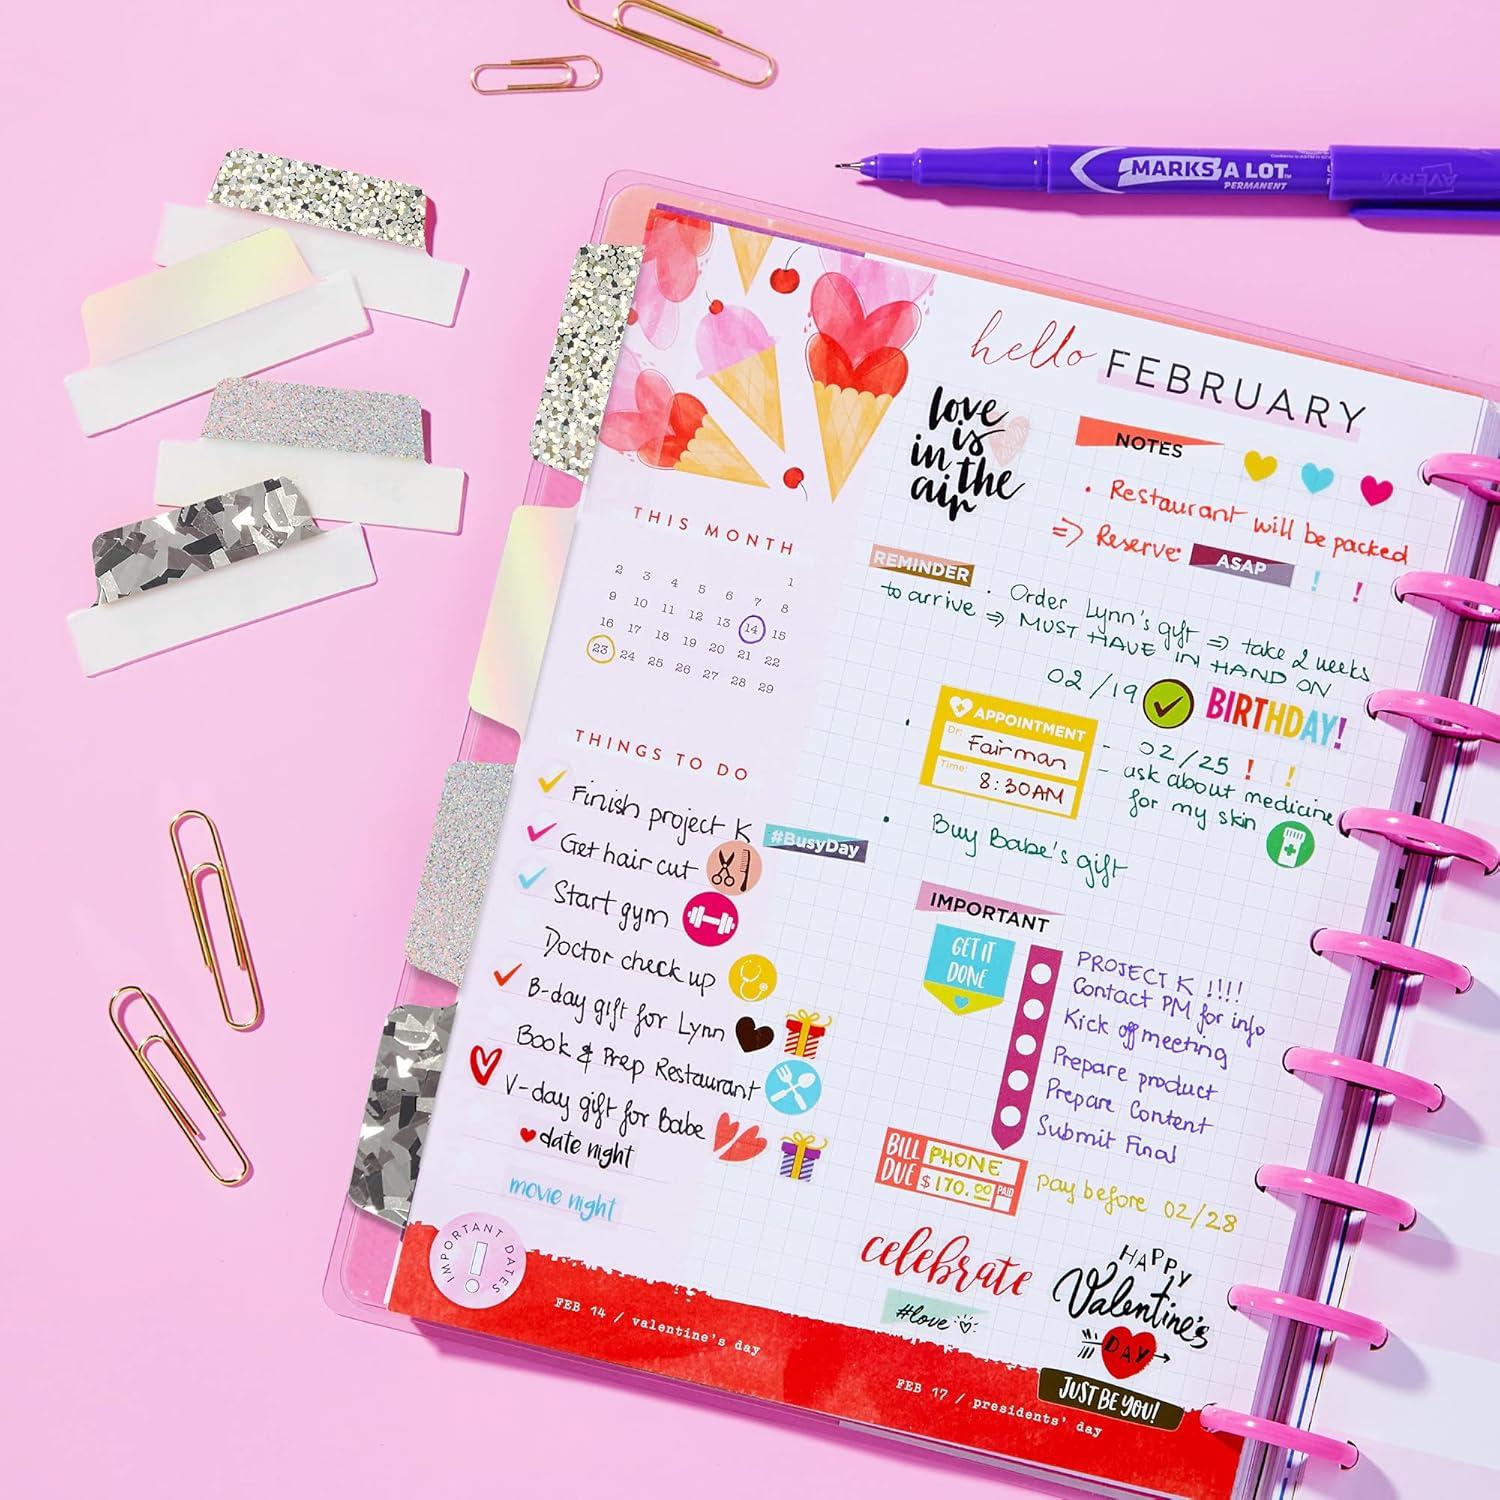 MARKS A LOT™
PERMANENT
AVERY
hello FEBRUARY
love
is
in the
air
NOTES
• Restaurant will be packed
⇒ Reserve ASAP ! !
REMINDER • Order Lynn's gift ⇒ take 2 weeks
to arrive ⇒ MUST HAVE IN HAND ON
02/19 BIRTHDAY!
THIS MONTH
1
2 3 4 5 6 7 8
9 10 11 12 13 14 15
16 17 18 19 20 21 22
23 24 25 26 27 28 29
• APPOINTMENT
Dr: Fairman
Time: 8:30AM
- 02/25 ! !
- ask about medicine
for my skin
• Buy Babe's gift
THINGS TO DO
Finish project K
#BusyDay
Get hair cut
Start gym
Doctor check up
B-day gift for Lynn
Book & Prep Restaurant
V-day gift for Babe
date night
movie night
IMPORTANT
GET IT
DONE
PROJECT K !!!!
Contact PM for info
Kick off meeting
Prepare product
Prepare Content
Submit Final
BILL
DUE
PHONE
$170.00
PAID
pay before 02/28
celebrate
#love
HAPPY
Valentine's
DAY
JUST BE YOU!
IMPORTANT DATES
FEB 14 / valentine's day
FEB 17 / presidents' day